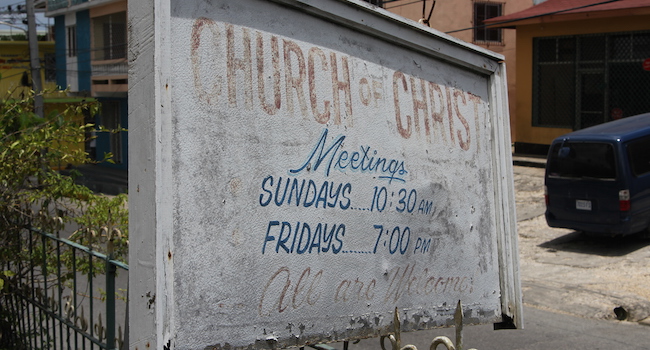 CHURCH OF CHRIST
Meetings
SUNDAYS.....10:30 AM
FRIDAYS........7:00 PM
All are Welcome